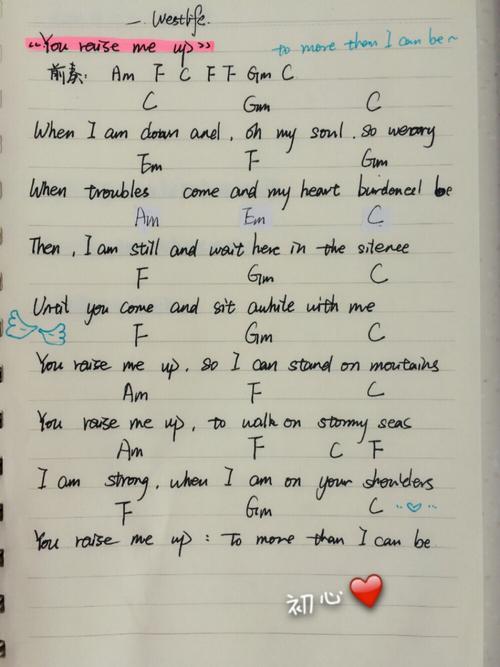 — Westlife.
《You raise me up》 to more than I can be~
前奏: Am F C F F Gm C
C Gm C
When I am down and, oh my soul, so weary
Em F Gm
When troubles come and my heart burdoned be
Am Em C
Then, I am still and wait here in the silence
F Gm C
Until you come and sit awhile with me
F Gm C
You raise me up, so I can stand on moutains
Am F C
You raise me up, to walk on stormy seas
Am F C F
I am strong, when I am on your shoulders
F Gm C
You raise me up: To more than I can be
初心